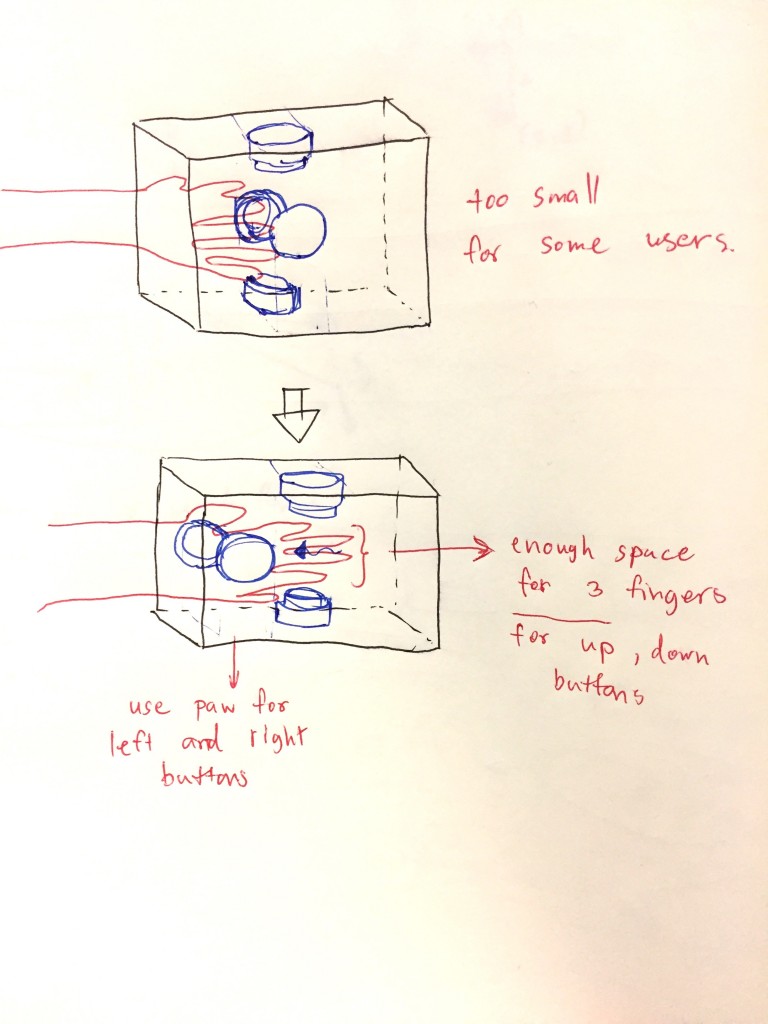 too small
for some users.
enough space
for 3 fingers
for up, down
buttons
use paw for
left and right
buttons